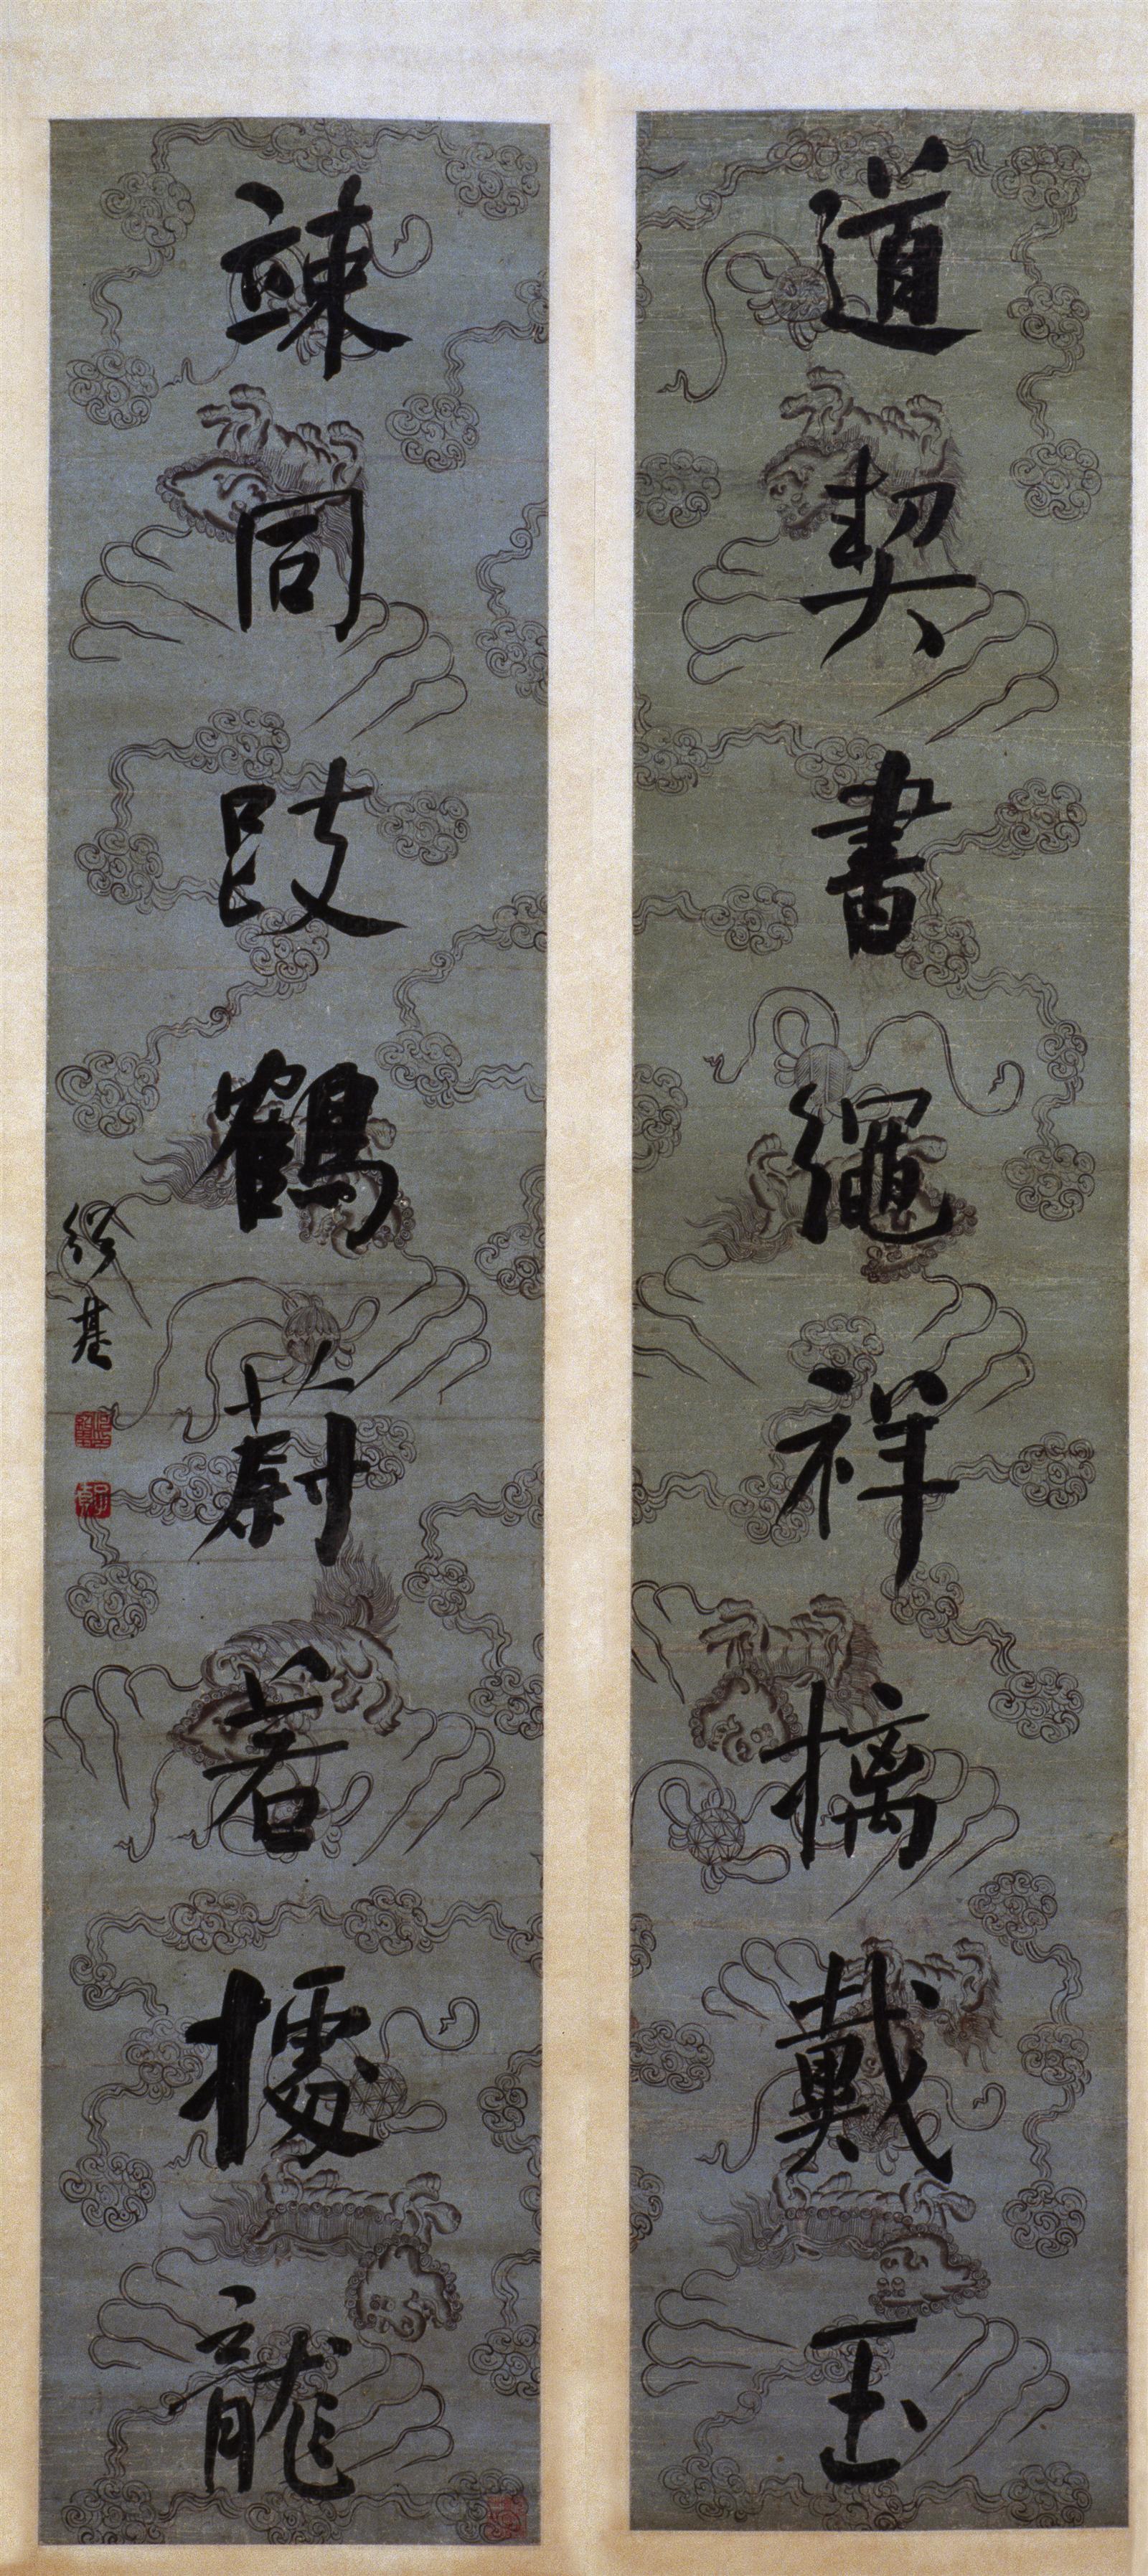 道契書繩祥摛戴玉
竦同跂鶴蔚若攄龍
紹基
子貞